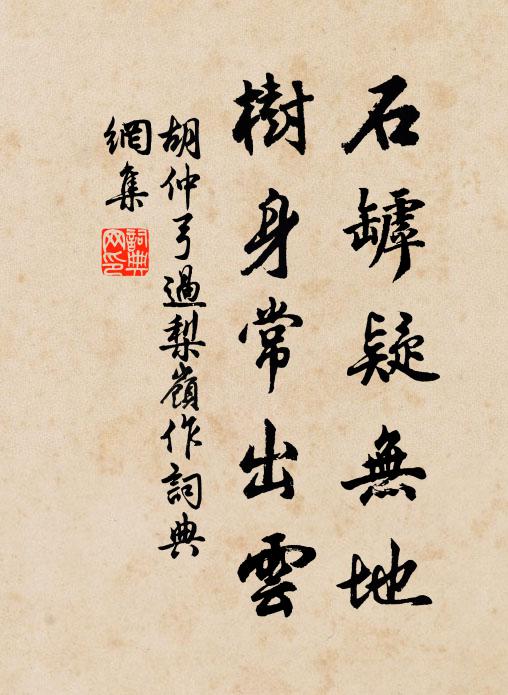 石罅疑無地
樹身常出雲
胡仲弓過梨嶺作詞典
網集
詞典
网印